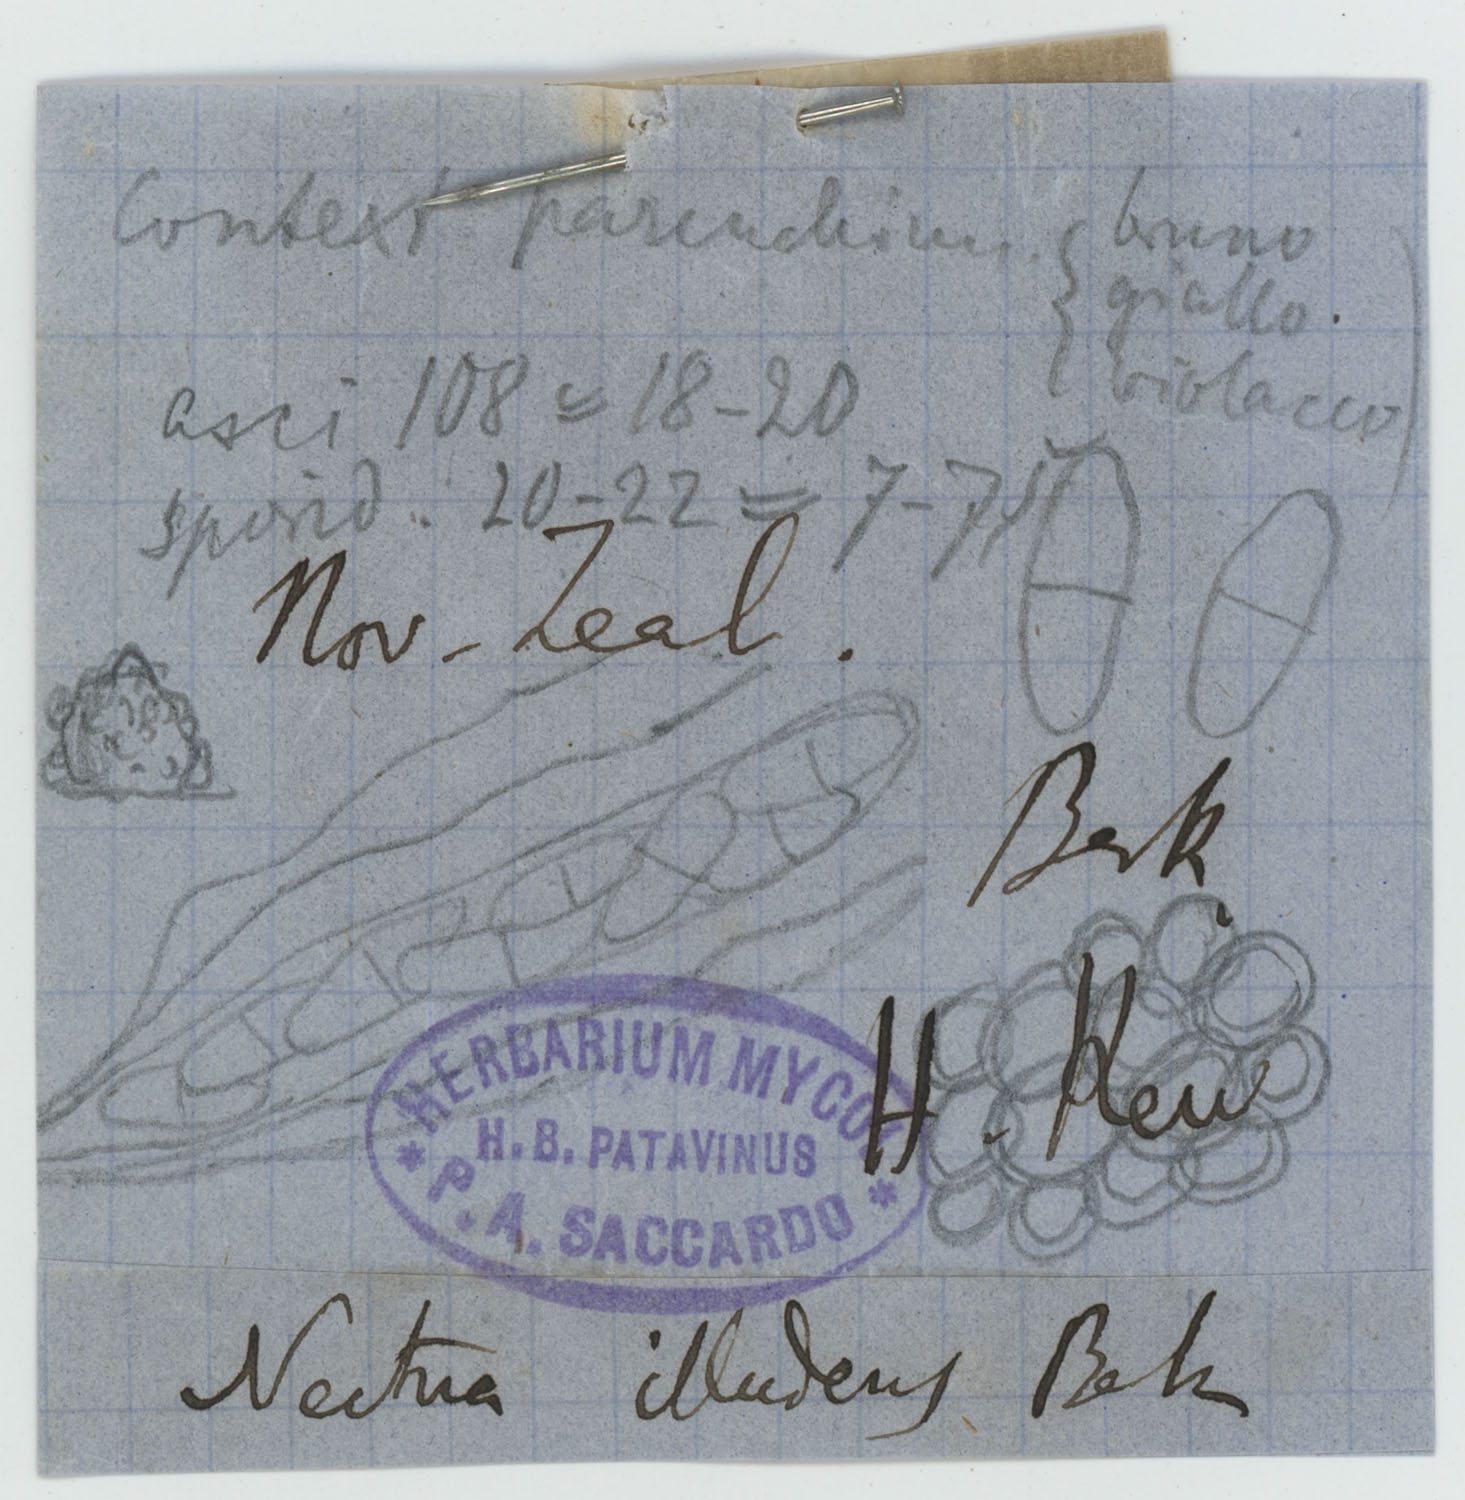 Context parenchim. { bruno
giallo.
violaceo )
asci 108 ≈ 18-20
sporid. 20-22 = 7-7,5
Nov-Zeal.
Berk
H. Kew
HERBARIUM MYCOL.
H. B. PATAVINUS
* P. A. SACCARDO *
Nectria illudens Berk